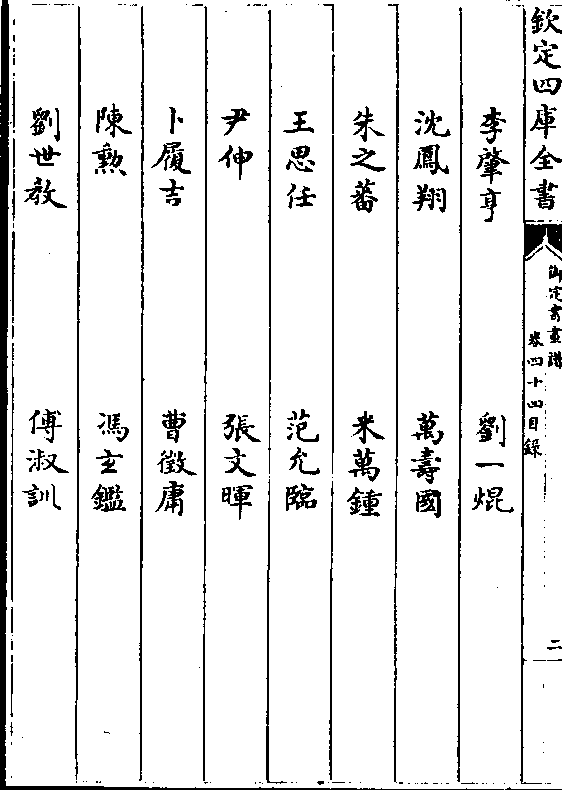 欽定四庫全書
御定書畫譜
卷四十四目錄
二
李肇亨 劉一焜
沈鳳翔 萬壽國
朱之蕃 米萬鍾
王思任 范允臨
尹伸 張文暉
卜履吉 曹徵庸
陳勲 馮玄鑑
劉世教 傅淑訓